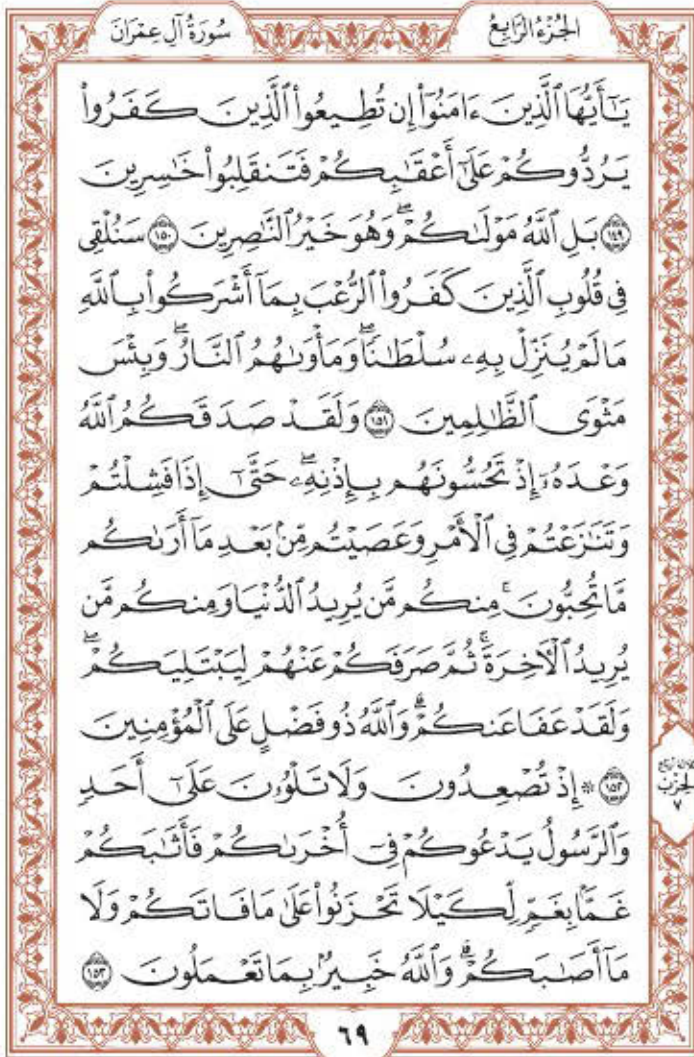 الجُزْءُ الرَّابِعُ
سُورَةُ آلِ عِمْرَانَ
يَٰٓأَيُّهَا ٱلَّذِينَ ءَامَنُوٓاْ إِن تُطِيعُواْ ٱلَّذِينَ كَفَرُواْ
يَرُدُّوكُمْ عَلَىٰٓ أَعْقَٰبِكُمْ فَتَنقَلِبُواْ خَٰسِرِينَ
١٤٩ بَلِ ٱللَّهُ مَوْلَىٰكُمْۖ وَهُوَ خَيْرُ ٱلنَّٰصِرِينَ ١٥٠ سَنُلْقِى
فِى قُلُوبِ ٱلَّذِينَ كَفَرُواْ ٱلرُّعْبَ بِمَآ أَشْرَكُواْ بِٱللَّهِ
مَا لَمْ يُنَزِّلْ بِهِۦ سُلْطَٰنًاۖ وَمَأْوَىٰهُمُ ٱلنَّارُۖ وَبِئْسَ
مَثْوَى ٱلظَّٰلِمِينَ ١٥١ وَلَقَدْ صَدَقَكُمُ ٱللَّهُ
وَعْدَهُۥٓ إِذْ تَحُسُّونَهُم بِإِذْنِهِۦۖ حَتَّىٰٓ إِذَا فَشِلْتُمْ
وَتَنَٰزَعْتُمْ فِى ٱلْأَمْرِ وَعَصَيْتُم مِّنۢ بَعْدِ مَآ أَرَىٰكُم
مَّا تُحِبُّونَۚ مِنكُم مَّن يُرِيدُ ٱلدُّنْيَا وَمِنكُم مَّن
يُرِيدُ ٱلْأَخِرَةَۚ ثُمَّ صَرَفَكُمْ عَنْهُمْ لِيَبْتَلِيَكُمْۖ
وَلَقَدْ عَفَا عَنكُمْۗ وَٱللَّهُ ذُو فَضْلٍ عَلَى ٱلْمُؤْمِنِينَ
١٥٢ ۞ إِذْ تُصْعِدُونَ وَلَا تَلْوُۥنَ عَلَىٰٓ أَحَدٍ
وَٱلرَّسُولُ يَدْعُوكُمْ فِىٓ أُخْرَىٰكُمْ فَأَثَٰبَكُمْ
غَمَّۢا بِغَمٍّ لِّكَيْلَا تَحْزَنُواْ عَلَىٰ مَا فَاتَكُمْ وَلَا
مَآ أَصَٰبَكُمْۗ وَٱللَّهُ خَبِيرٌۢ بِمَا تَعْمَلُونَ ١٥٣
ثلاثة أرباع
الحزب
٧
٦٩